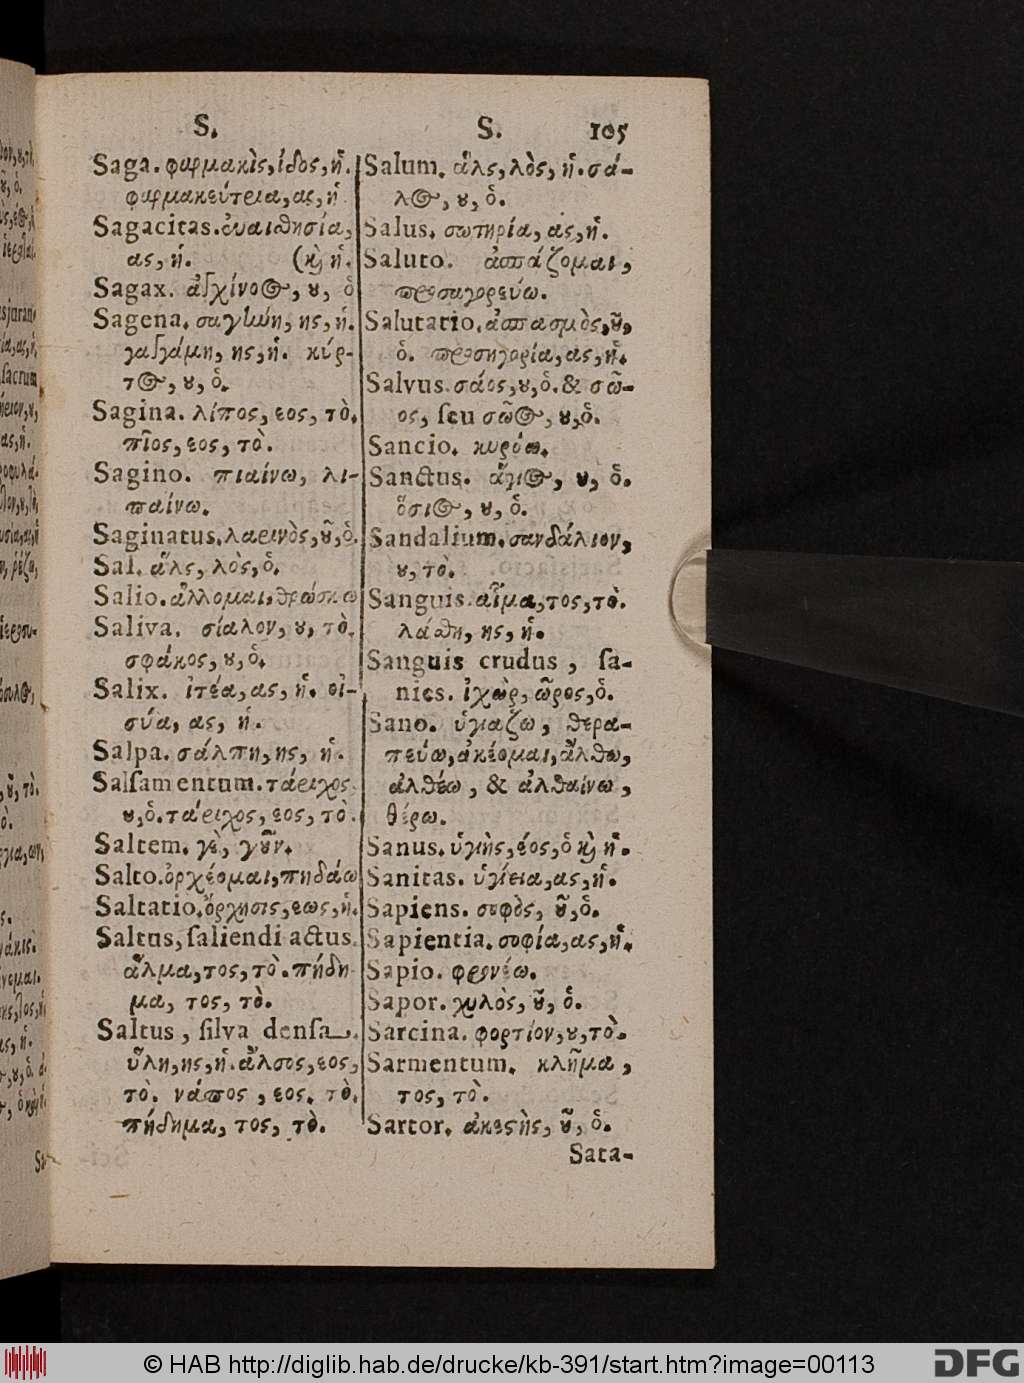 S.
Saga. φαρμακὶς, ίδος, ἡ.
φαρμακεύτεια, ας, ἡ
Sagacitas. ἐυαιϑησία,
ας, ἡ. (κỳ ἡ.
Sagax. ἀγχίνοος, ου, ὁ
Sagena. σαγήνη, ης, ἡ.
γαγγάμη, ης, ἡ. κύρ-
τος, ου, ὁ.
Sagina. λίπος, εος, τὸ.
πῖος, εος, τὸ.
Sagino. πιαίνω, λι-
παίνω.
Saginatus. λαρινὸς, οῦ, ὁ.
Sal. ἅλς, λὸς, ὁ.
Salio. ἅλλομαι, θρώσκω
Saliva. σίαλον, ου, τὸ.
σφάκος, ου, ὁ.
Salix. ἰτέα, ας, ἡ. οἰ-
σύα, ας, ἡ.
Salpa. σάλπη, ης, ἡ.
Salſamentum. τάριχος
ου, ὁ. τάριχος, εος, τὸ.
Saltem. γὲ, γοῦν.
Salto. ὀρχέομαι, πηδάω
Saltatio. ὄρχησις, εως, ἡ.
Saltus, ſaliendi actus.
ἅλμα, τος, τὸ. πήδη-
μα, τος, τὸ.
Saltus, ſilva denſa.
ὕλη, ης, ἡ. ἄλσος, εος,
τὸ. νάπος, εος, τὸ.
πήδημα, τος, τὸ.
S. 105
Salum. ἁλς, λὸς, ἡ. σά-
λος, ου, ὁ.
Salus. σωτηρία, ας, ἡ.
Saluto. ἀσπάζομαι,
προσαγορεύω.
Salutatio. ἀσπασμὸς, οῦ,
ὁ. προσηγορία, ας, ἡ.
Salvus. σάος, ου, ὁ. & σῶ-
ος, ſeu σῶος, ου, ὁ.
Sancio. κυρόω.
Sanctus. ἅγιος, ου, ὁ.
ὅσιος, ου, ὁ.
Sandalium. σανδάλιον,
ου, τὸ.
Sanguis. αἷμα, τος, τὸ.
λάθη, ης, ἡ.
Sanguis crudus, ſa-
nies. ἰχὼρ, ῶρος, ὁ.
Sano. ὑγιαζω, θερα-
πεύω, ἀκέομαι, ἄλθω,
ἀλθέω, & ἀλθαίνω,
θέρω.
Sanus. ὑγιὴς, έος, ὁ κỳ ἡ.
Sanitas. ὑγίεια, ας, ἡ.
Sapiens. σοφὸς, οῦ, ὁ.
Sapientia. σοφία, ας, ἡ.
Sapio. φρονέω.
Sapor. χυλὸς, οῦ, ὁ.
Sarcina. φορτίον, ου, τὸ.
Sarmentum. κλῆμα,
τος, τὸ.
Sartor. ἀκεστὴς, οῦ, ὁ.
Sata-
© HAB http://diglib.hab.de/drucke/kb-391/start.htm?image=00113
DFG